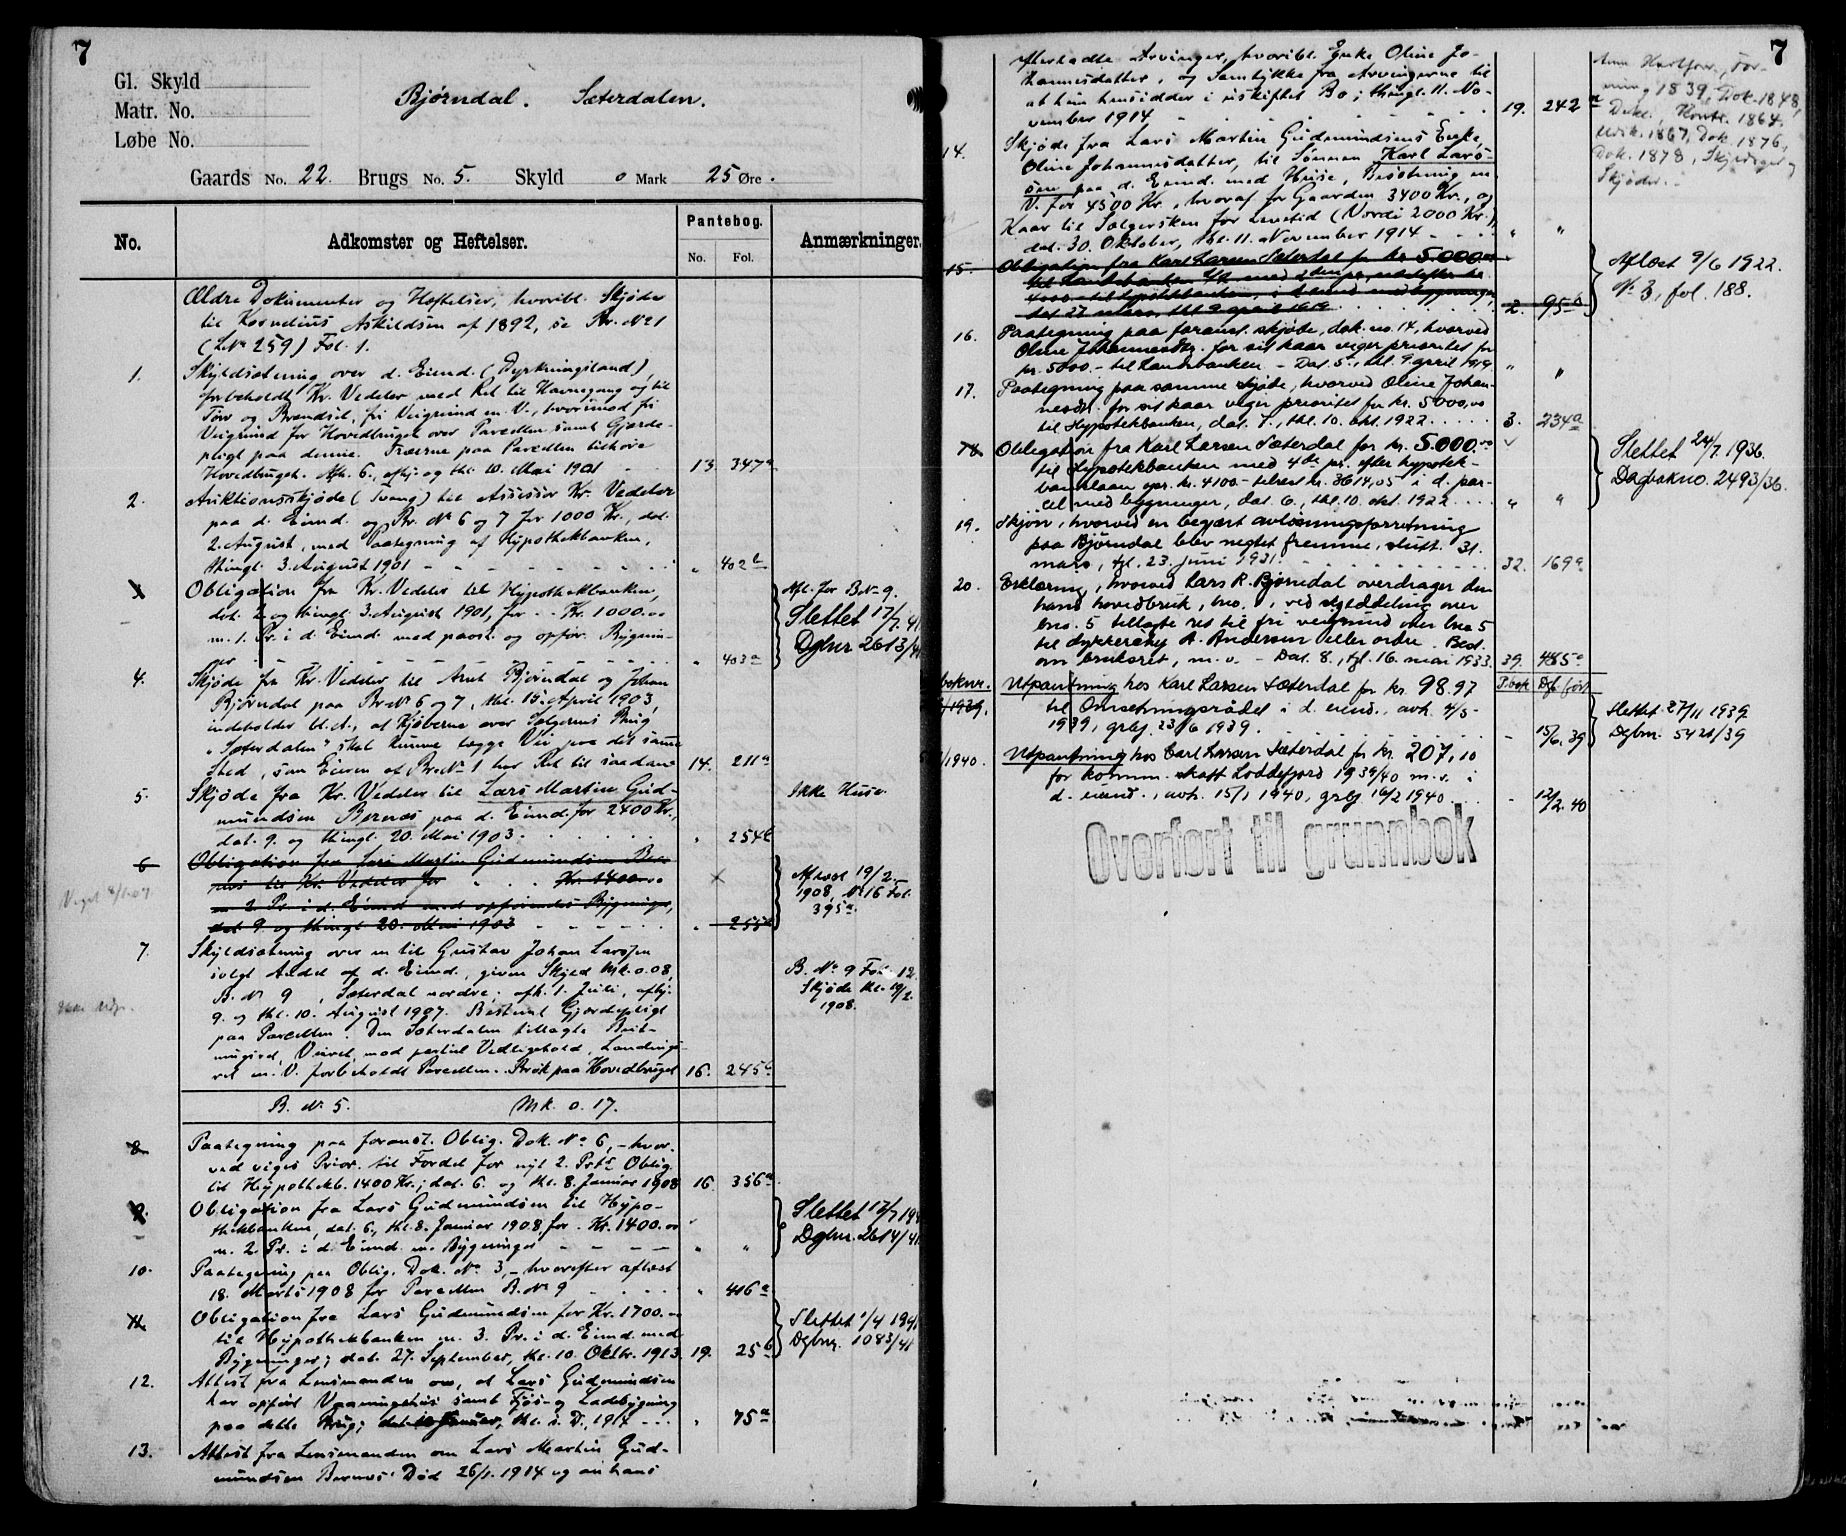 7
Gl. Skyld
Matr. No.
Løbe No.
Bjørndal. Sæterdalen.
Gaards No. 22. Brugs No. 5. Skyld 0 Mark 25 Øre.
No. Adkomster og Heftelser. Pantebog. No. Fol. Anmærkninger.
Ældre Dokumenter og Heftelser, hvoribl. Skjøde
til Kornelius Askildsen af 1892, se Br. No 1
(LNo 259) Fol. 1.
1. Skyldsætning over d. Eiend. (Dyrkningsland),
forbeholdt Kr. Vedeler med Ret til Havnegang og til
Torv og Brændsel, fri Veigrund m. V., hvorimod fri
Veigrund for Hovedbruget over Parcellen samt Gjærde-
pligt paa denne. Træerne paa Parcellen tilhøre
Hovedbruget. Afh. 6., afhj. og thl. 10. Mai 1901 13. 347a
2. Auktionsskjøde (Tvang) til Assessor Kr. Vedeler
paa d. Eiend. og Br. No 6 og 7 for 1000 Kr., dat.
2. August, med Paategning af Hypothekbanken,
thingl. 3. August 1901 " 402b
3 Obligation fra Kr. Vedeler til Hypothekbanken,
dat. 2. og thingl. 3. August 1901, for - Kr. 1000.00
m. 1. Pr. i d. Eiend. med paast. og opfør. Bygnin-
ger " 403a
Afl. for B.No 9.
Slettet 17/7.41
Dgbnr 2613/41
4. Skjøde fra Kr. Vedeler til Arnt Bjørndal og Johan
Bjørndal paa Br. No 6 og 7, thl. 15. April 1903,
indeholder bl. A., at Kjøberne over Sælgerens Brug
"Sæterdalen" skal kunne lægge Vei paa det samme
Sted, som Eieren af Br. No 1 har Ret til saadan 14. 211a
5. Skjøde fra Kr. Vedeler til Lars Martin Gud-
mundsen Bernæs paa d. Eiend. for 2400 Kr.,
dat. 9. og thingl. 20. Mai 1903 " 254b
Ikke Huse.
6 Obligation fra Lars Martin Gudmundsen Ber-
næs til Kr. Vedeler for Kr. 1400.00
m 2 Pr. i d. Eiend med opførendes Bygninger,
dat. 9. og thingl. 20. Mai 1903 " 255b
Aflæst 19/2
1908, No 16 Fol.
395a.
7. Skyldsætning over en til Gustav Johan Larssen
solgt Andel af d. Eiend., given Skyld Mk. 0.08,
B. No 9, Sæterdal nordre, afh. 1. Juli, afhj.
9. og thl. 10. August 1907. Bestemt Gjerdepligt
paa Parcellen. Den Sæterdalen tillagte Beit-
ningsret, Veiret, med partiel Vedligehold, Landings-
ret m. V. forbeholdt Parcellen. Brøk paa Hovedbruget 16. 245b
B. No 9 Fol. 12.
Skjøde thl. 19/2.
1908.
B. No 5. Mk. 0. 17.
8. Paategning paa foranst. Oblig. Dok. No 6, - hvor-
ved viges Prior. til Fordel for nyt 2. Prts Oblig.
til Hypothekb. 1400 Kr.; dat. 6. og thl. 8. Januar 1908 16 356a
9. Obligation fra Lars Gudmundsen til Hypo-
thekbanken, dat. 6., thl. 8. Januar 1908, for - Kr. 1400.00
m. 2. Pr. i d. Eiend. m. Bygninger " "
Slettet 17/7 194
Dgbnr. 2614/41
10. Paategning paa Oblig. Dok. No 3, - hvorefter aflæst
18. Marts 1908 for Parcellen B. No 9 " 416a
11. Obligation fra Lars Gudmundsen for Kr. 1700.00
til Hypothekbanken m. 3. Pr. i d. Eiend. med
Bygninger; dat. 27. September, thl. 10. Oktbr. 1913. 19. 25b
Slettet 1/4 1941
Dgbnr. 1083/41
12. Attest fra Lensmanden om, at Lars Gudmundsen
har opført Vaaningshus samt Fjøs- og Ladebygning
paa dette Brug; dat. 10 Januar, thl. s. D. 1914 " 75a
13. Attest fra Lensmanden om Lars Martin Gud-
mundsen Bernæs' Død 26/1. 1914 og om hans
7
efterladte Arvinger, hvoribl. Enke Oline Jo-
hannesdatter, og Samtykke fra Arvingerne til
at hun hensidder i uskiftet Bo; thingl. 11. No-
vember 1914 19. 242a
14. Skjøde fra Lars Martin Gudmundsens Enke,
Oline Johannesdatter, til Sønnen Karl Lars-
sen paa d. Eiend. med Huse, Besætning m
V. for 4500 Kr., hvoraf for Gaarden 3400 Kr., og
Kaar til Sælgersken for Levetid (Værdi 2000 Kr.)
dat. 30. Oktober, thl. 11. November 1914 " "
15. Obligation fra Karl Larsen Sæterdal for kr 5.000.00
til Landsbanken A/S med 2den pr. næstefter kr.
4000 til Hypotekbanken, i d. eiend. med bygninger,
dat 27 mars, thl 9 april 1919 2. 95b
Aflæst 9/6 1922.
No 3, fol. 188.
16. Paategning paa foranst. skjøde, dok. no. 14, hvorved
Oline Johannesdtr. for sit kaar viger prioritet for
kr. 5000.- til Landsbanken - Dat. 5., thl. 9. april 1919 " "
17. Paategning paa samme skjøde, hvorved Oline Johan-
nesdtr. for sit kaar viger prioritet for kr. 5000,00
til Hypotekbanken, dat. 7., thl. 10. okt. 1922 3. 234a
18. Obligation fra Karl Larsen Sæterdal for kr. 5.000.00
til Hypotekbanken med 4de pr. efter hypotek-
banklaan opr. kr. 4100.- tilrest kr. 3614,05 i d. par-
cel med bygninger, dat. 6., thl. 10. okt. 1922 " "
Slettet 24/7 1936.
Dagbokno. 2493/36.
19. Skjøn, hvorved en begjært avløsningsforretning
paa Bjørndal blev negtet fremme, slutt. 31.
mars, tgl. 23. juni 1931. 32. 169a
20. Erklæring, hvorved Lars K. Bjørndal overdrager den
hans hovedbruk, bno. 1, ved skylddeling over
bno. 5 tillagte ret til fri veigrund over bno 5
til dykkersky A. Andersen eller ordre. Best.
om bruksret, m. v. - Dat. 8., tgl. 16. mai 1933. 39. 485a
P.bok Dgb. ført
Utpantning hos Karl Larsen Sæterdal for kr. 98.97
til Omsetningsrådet i d. eiend., avh. 4/5-
1939, grbf. 23/6 1939. - 15/6.39
Slettet 27/11 1939
Dgbnr. 5421/39
/1940. Utpantning hos Carl Larsen Sæterdal for kr. 207,10
for komm. skatt Loddefjord 1939/40 m. v. i
d. eiend., avh. 15/1 1940, grbf 16/2 1940 - 12/2. 40
Overført til grunnbok